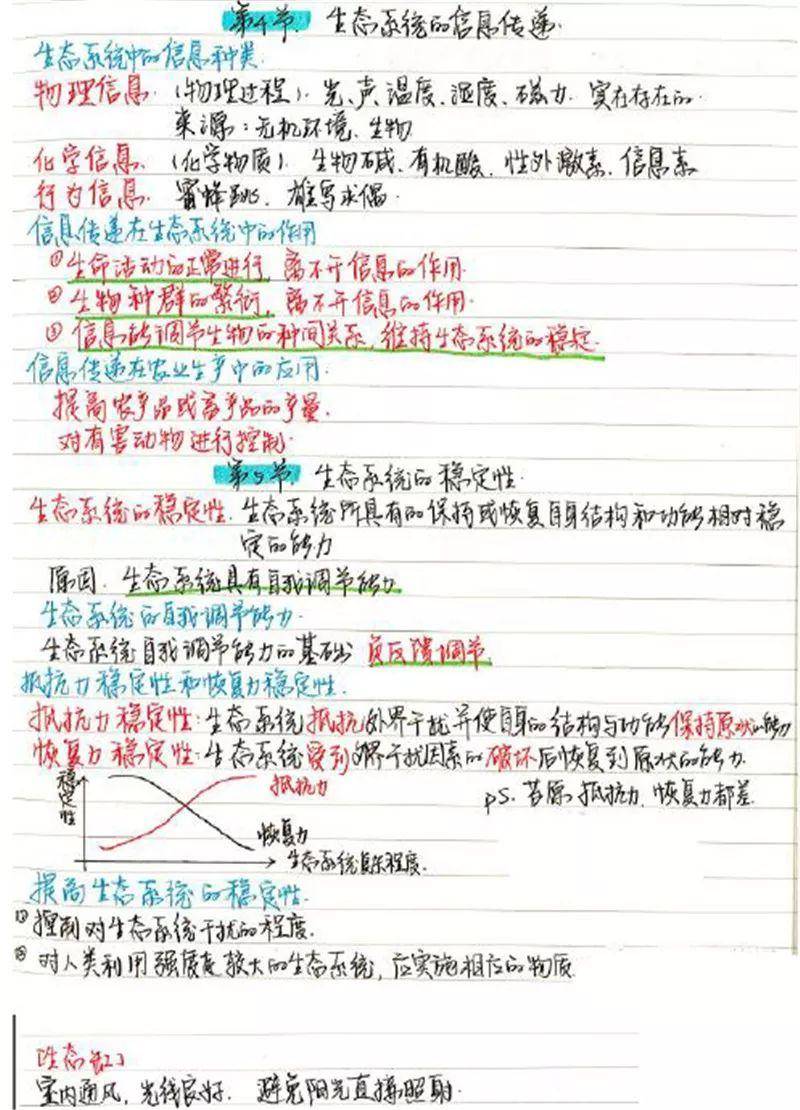 第4节 生态系统的信息传递.
生态系统中的信息种类.
物理信息. (物理过程). 光、声、温度、湿度、磁力. 实在存在的.
来源:无机环境、生物
化学信息. (化学物质). 生物碱、有机酸、性外激素、信息素
行为信息. 蜜蜂跳、雄鸟求偶.
信息传递在生态系统中的作用
①生命活动的正常进行, 离不开信息的作用.
②生物种群的繁衍, 离不开信息的作用.
③信息能调节生物的种间关系, 维持生态系统的稳定.
信息传递在农业生产中的应用.
提高农产品或畜产品的产量.
对有害动物进行控制.
第5节 生态系统的稳定性.
生态系统的稳定性. 生态系统所具有的保持或恢复自身结构和功能相对稳
定的能力
原因. 生态系统具有自我调节能力
生态系统的自我调节能力
生态系统自我调节能力的基础 负反馈调节.
抵抗力稳定性和恢复力稳定性.
抵抗力稳定性:生态系统抵抗外界干扰并使自身的结构与功能保持原状的能力
恢复力稳定性:生态系统受到外界干扰因素的破坏后恢复到原状的能力.
稳定性
抵抗力
ps. 苔原 抵抗力、恢复力都差.
恢复力
生态系统复杂程度.
提高生态系统的稳定性.
①控制对生态系统干扰的程度.
②对人类利用强度较大的生态系统, 应实施相应的物质
[生态缸]
室内通风, 光线良好. 避免阳光直接照射.